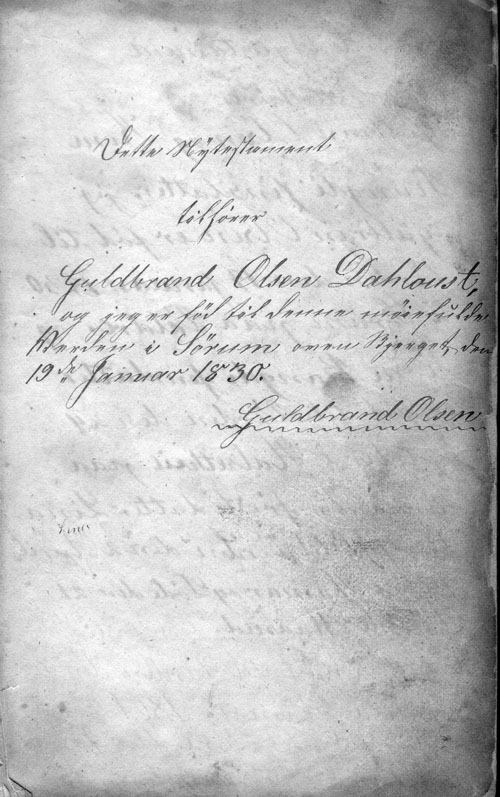 Dette Nytestament
tilhører
Guldbrand Olsen Dahloust,
og jeg er föd til denne möiefulde
Werden i Sörum oven Bjerget, den
19de Januar 1830.
Guldbrand Olsen